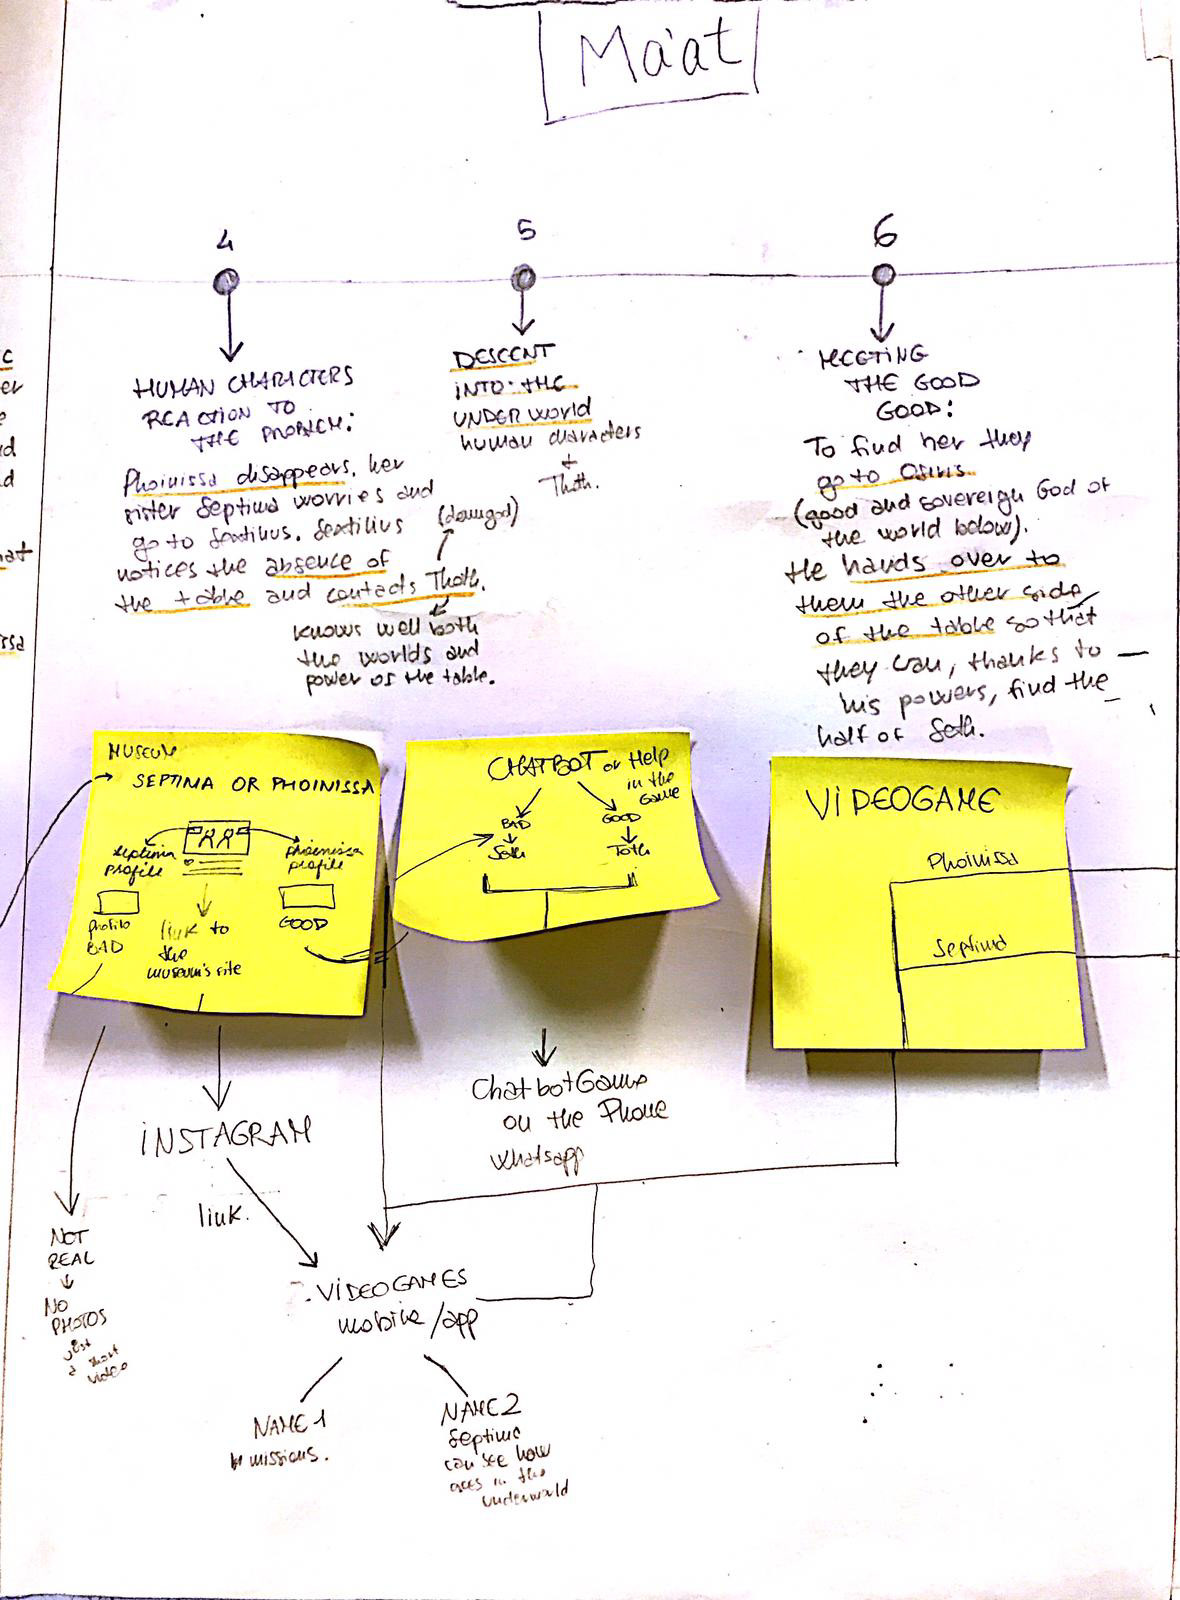 Ma'at
4
5
6
HUMAN CHARACTERS
REACTION TO
THE PROBLEM:
Phoinissa disappears, her
sister Septima worries and
go to Sextilius. Sextilius
notices the absence of
the table and contacts Thoth.
(damaged)
knows well both
the worlds and
power of the table.
DESCENT
INTO THE
UNDER world
human characters
+
Thoth.
MEETING
THE GOOD
GOOD:
To find her they
go to Osiris.
(good and sovereign God of
the world below).
He hands over to
them the other side
of the table so that
they can, thanks to
his powers, find the
half of Seth.
MUSEUM
SEPTIMA OR PHOINISSA
Septima
profile
phoenissa
profile
profile
BAD
link to
the
museum's site
GOOD
CHATBOT or Help
in the
Game
BAD
GOOD
Seth
Toth
VIDEOGAME
Phoinissa
Septima
INSTAGRAM
link.
Chatbot Game
on the Phone
whatsapp
NOT
REAL
NO
PHOTOS
just
a short
video
VIDEOGAMES
mobile/app
NAME 1
missions.
NAME 2
Septima
can see how
goes in the
underworld
c
er
e
d
d
at
ssa